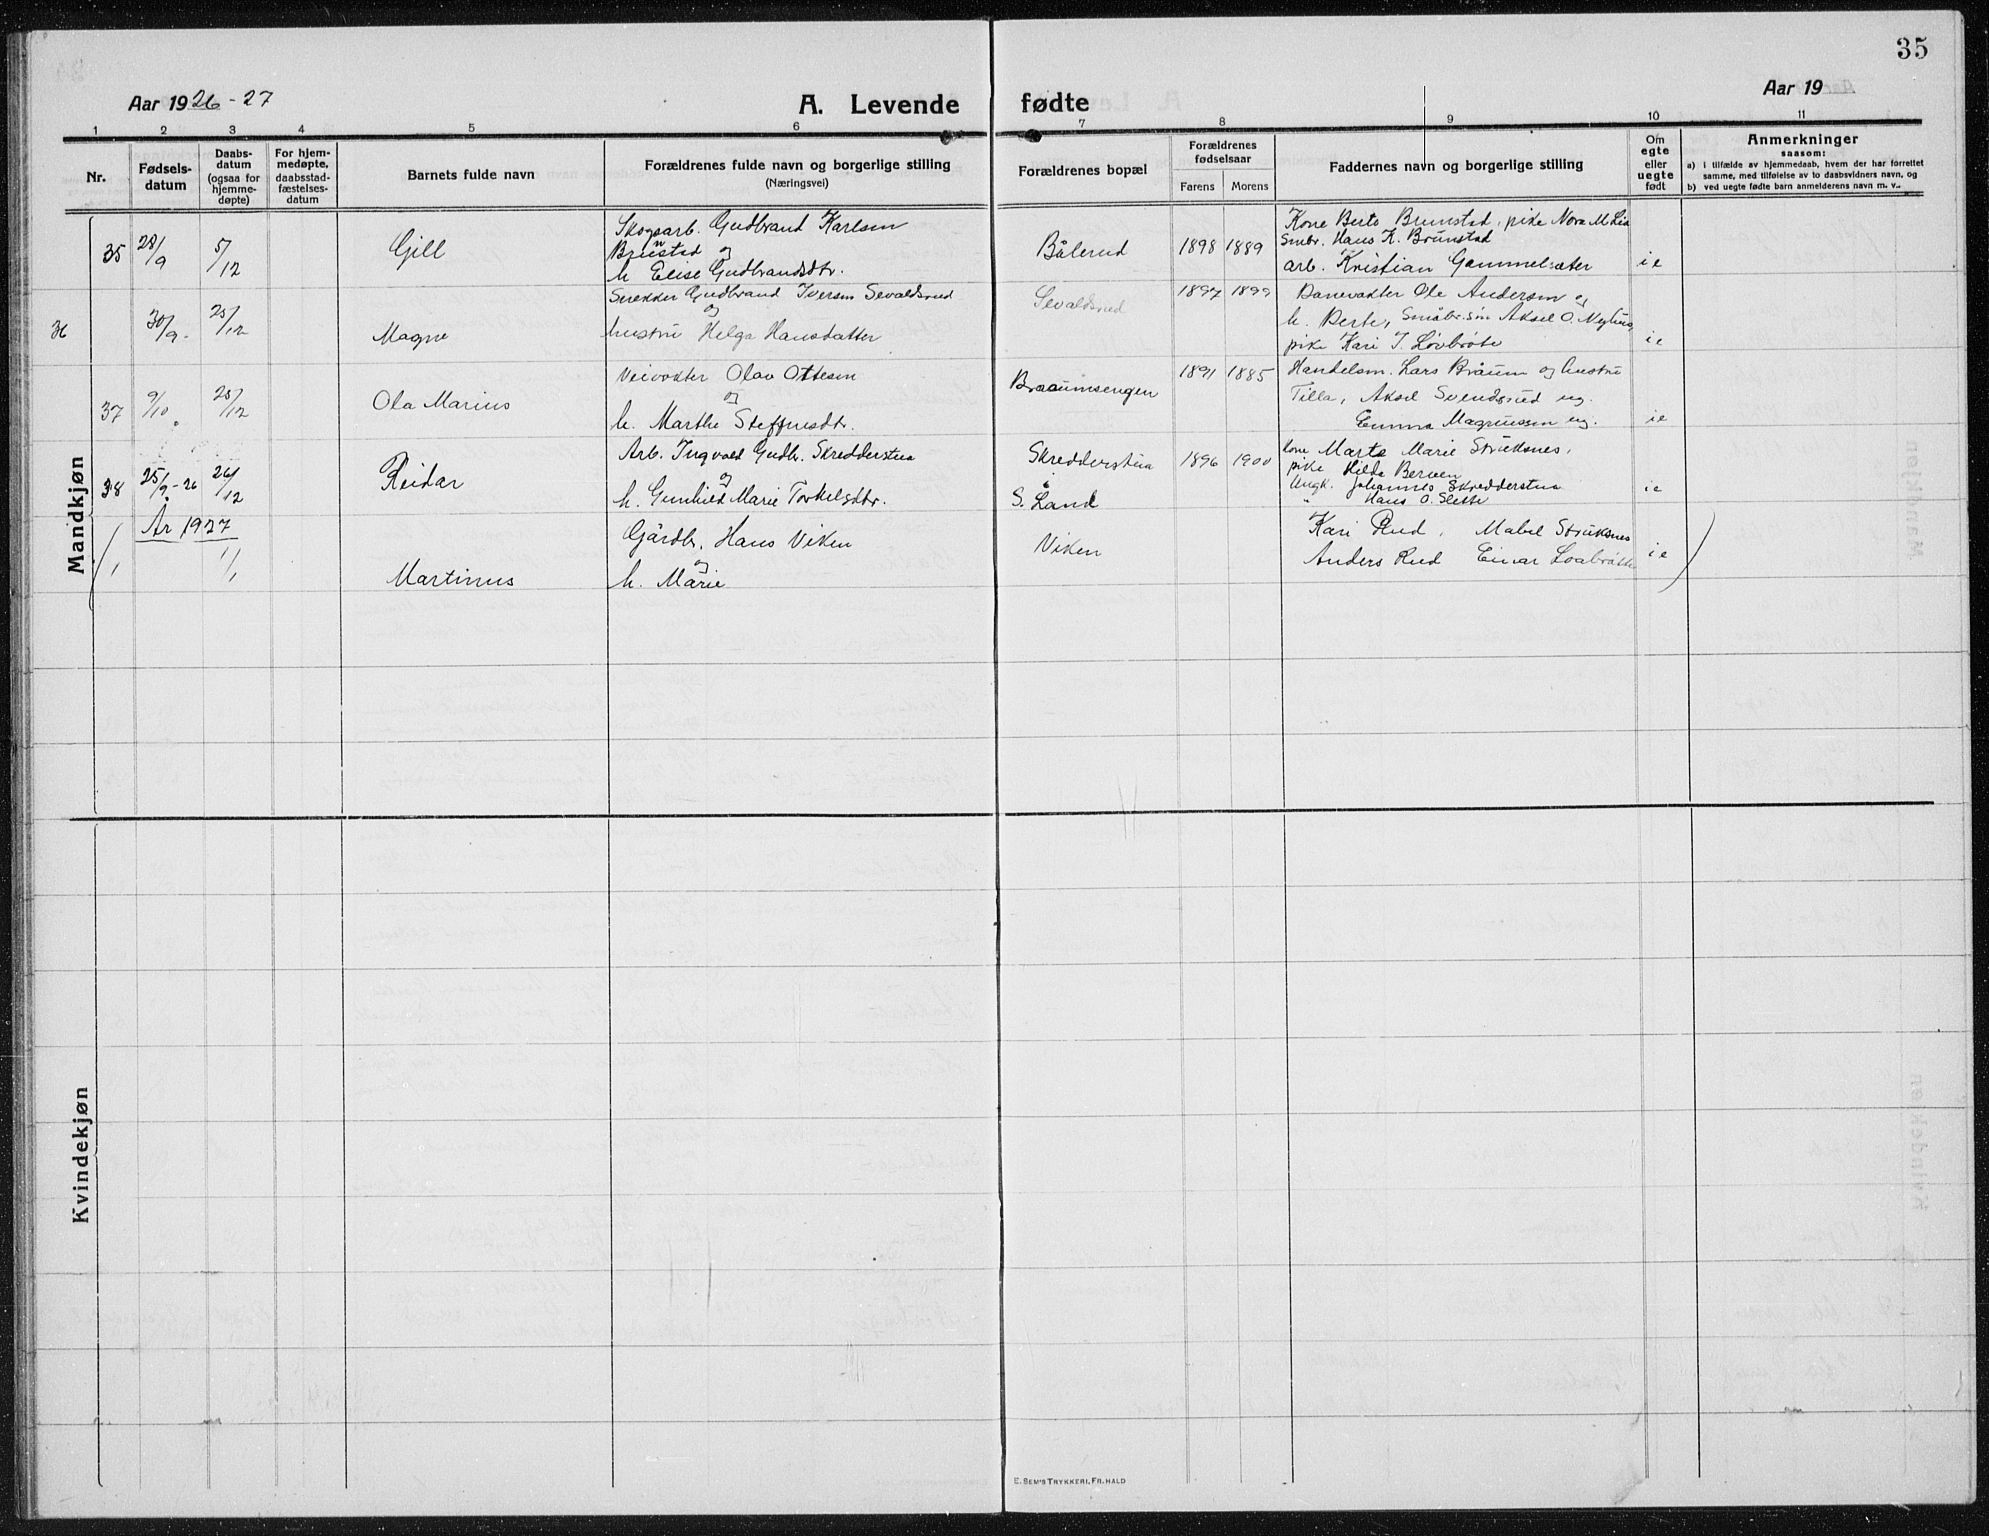 35
Aar 1926-27
A. Levende fødte
Aar 19
1 2 3 4 5 6 7 8 9 10 11
Nr.
Fødsels-
datum
Daabs-
datum
(ogsaa for
hjemme-
døpte)
For hjem-
medøpte,
daabsstad-
fæstelses-
datum
Barnets fulde navn
Forældrenes fulde navn og borgerlige stilling
(Næringsvei)
Forældrenes bopæl
Forældrenes
fødselsaar
Farens Morens
Faddernes navn og borgerlige stilling
Om
egte
eller
uegte
født
Anmerkninger
saasom:
a) i tilfælde av hjemmedaab, hvem der har forrettet
samme, med tilføielse av to daabsvidners navn, og
b) ved uegte fødte barn anmelderens navn m. v..
Mandkjøn
35 28/9 5/12 Gjill
Skogsarb. Gudbrand Karlsen
Brunstad og
h. Elise Gudbrandsdtr.
Bålerud 1898 1889
Kone Berte Brunstad, pike Nora M. Lia
Smbr. Hans K. Brunstad
arb. Kristian Gammelsæter ie
36 30/9. 25/12 Magne
Snekker Gudbrand Iversen Sevaldsrud
og
hustru Helga Hansdatter
Sevaldsrud 1897 1899
Banevokter Ole Andersen og
h. Berte, Småbr.søn Aksel O.
pike Kari J. Løvbrøte ie
37 9/10. 25/12 Ola Marius
Veivokter Olav Ottesen
og
h. Marthe Steffensdtr.
Braaumsengen 1891 1885
Handelsm. Lars Bråum og hustru
Tilla, Aksel Svendsrud ug.
Emma Magnussen ug. ie
38 25/9-26 26/12 Reidar
Arb. Ingvald Gudbr. Skredderstua
og
h. Gunhild Marie Torkelsdtr.
Skredderstua
S. Land 1896 1900
kone Marte Marie Struksnes,
pike Hilda Berven
Ungk. Johannes Skredderstua
" Hans O. Sletta ie
År 1927
1/1 Martinus
Gårdbr. Hans Viken
og
h. Marie
Viken
Kari Rud, Mabel Struksnes
Anders Rud Einar Loabråtte ie
Kvindekjøn
E. Sem's Trykkeri, Fr.hald